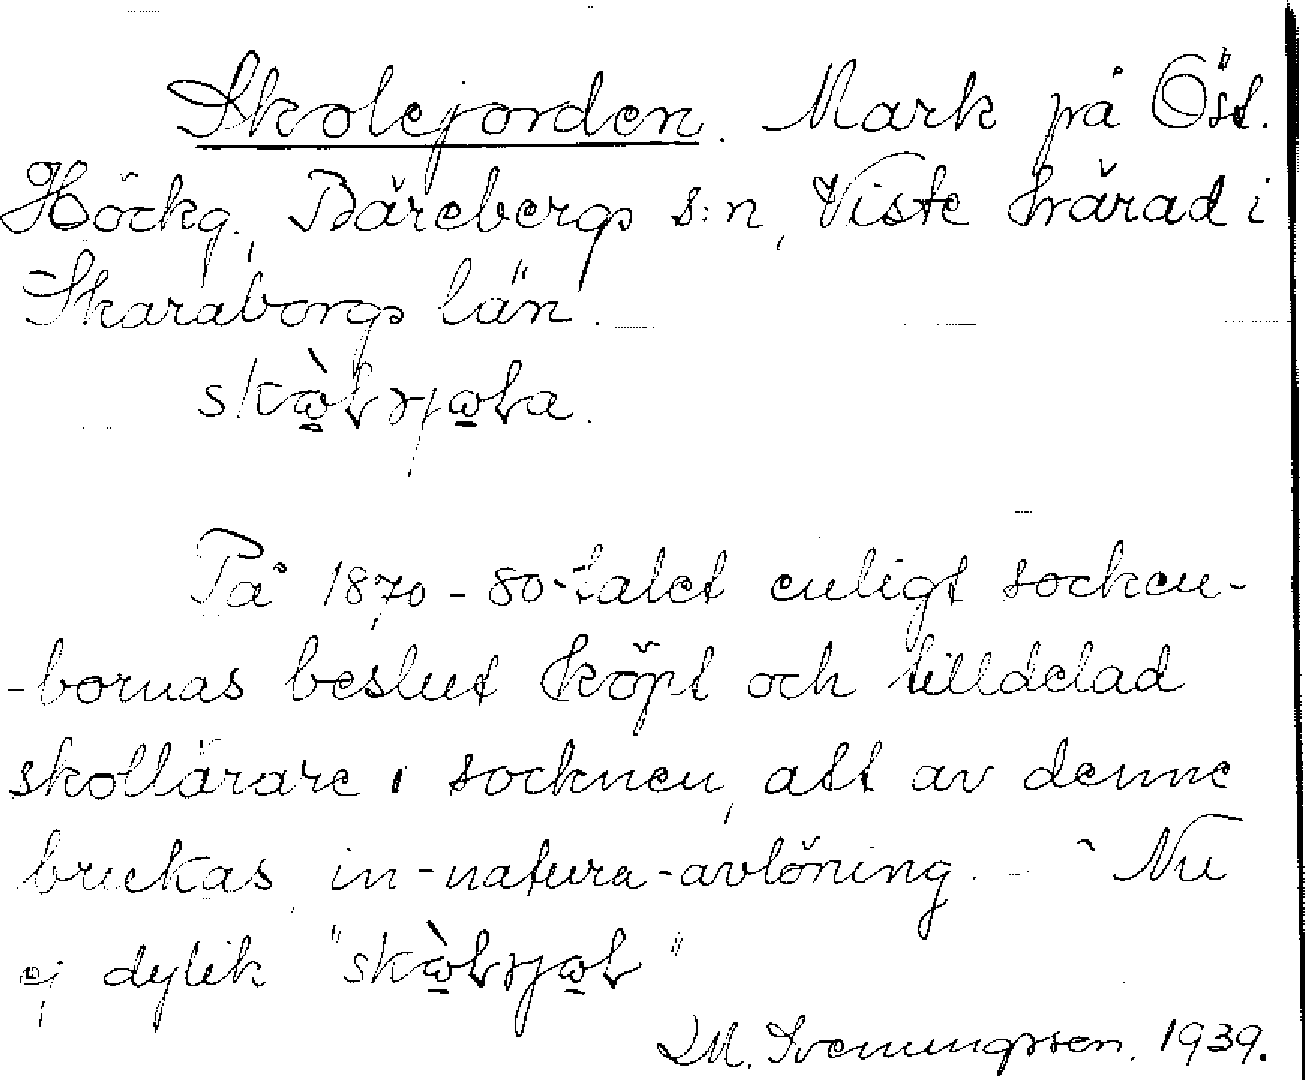 Skolejorden. Mark på Öst.
Höckg., Bärebergs s:n, Viste härad i
Skaraborgs län.
På 1870-80-talet enligt socken-
-bornas beslut köpt och tilldelad
skollärare i socknen, att av denne
brukas, in-natura-avlöning. - Nu
ej dylik
M. Sveningsson. 1939.